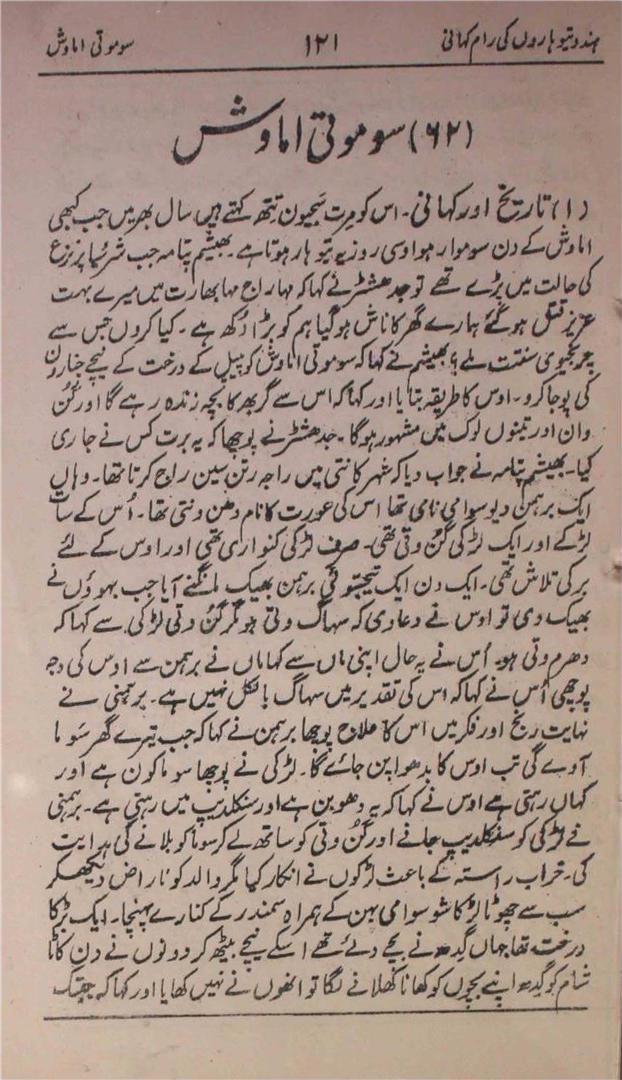 ہندو تیوہاروں کی رام کہانی ۱۲۱ سوموتی اماوش
(۶۲) سوموتی اماوش
(۱) تاریخ اور کہانی۔ اس کو مرت سَجیون تِتھ کہتے ہیں سال بھر میں جب کبھی
اماوش کے دن سوموار ہوا وسی روز یہ تیوہار ہوتا ہے۔ بھیشم پتامہ جب شرشیا پر نزع
کی حالت میں پڑے تھے تو جدھشٹر نے کہا کہ مہاراج مہابھارت میں میرے بہت
عزیز قتل ہو گئے ہمارے گھر کا ناش ہو گیا ہم کو بڑا دُکھ ہے۔ کیا کروں جس سے
چرنجیوی سنتت ملے؟ بھیشم نے کہا کہ سوموتی اماوش کو پیپل کے درخت کے نیچے جنارون
کی پوجا کرو۔ اوس کا طریقہ بتایا اور کہا کہ اس سے گربھ کا بچہ زندہ رہے گا اور گُن
وان اور تینوں لوک میں مشہور ہوگا۔ جدھشٹر نے پوچھا کہ یہ برت کس نے جاری
کیا۔ بھیشم پتامہ نے جواب دیا کہ شہر کانتی میں راجہ رتن سین راج کرتا تھا۔ وہاں
ایک برہمن دیوسوامی نامی تھا اس کی عورت کا نام دھن ونتی تھا۔ اُس کے سات
لڑکے اور ایک لڑکی گُن وتی تھی۔ صرف لڑکی کنواری تھی اور اوس کے لئے
بر کی تلاش تھی۔ ایک دن ایک برہمن بھیک مانگنے آیا جب بہوؤں نے
بھیک دی تو اوس نے دعا دی کہ سہاگ وتی ہو مگر گُن وتی لڑکی سے کہا کہ
دھرم وتی ہو۔ اُس نے یہ حال اپنی ماں سے کہا ماں نے برہمن سے اوس کی وجہ
پوچھی اُس نے کہا کہ اس کی تقدیر میں سہاگ بالکل نہیں ہے۔ برہمنی نے
نہایت رنج اور فکر میں اس کا علاج پوچھا برہمن نے کہا کہ جب تیرے گھر سَوما
آوے گی تب اوس کا بدھواپن جائے گا۔ لڑکی نے پوچھا سوما کون ہے اور
کہاں رہتی ہے اوس نے کہا کہ یہ دھوبن ہے اور سنکلدیپ میں رہتی ہے۔ برہمنی
نے لڑکی کو سنکلدیپ جانے اور گُن وتی کو ساتھ لے کر سوما کو بلانے کی ہدایت
کی۔ خراب راستہ کے باعث لڑکوں نے انکار کیا مگر والد کو ناراض دیکھکر
سب سے چھوٹا لڑکا شوسوامی بہن کے ہمراہ سمندر کے کنارے پہنچا۔ ایک بڑکا
درخت تھا جہاں گدھ نے بچے دئے تھے اسکے نیچے بیٹھ کر دونوں نے دن کاٹا
شام کو گدھ اپنے بچوں کو کھانا کھلانے لگا تو انھوں نے نہیں کھایا اور کہا کہ جبتک